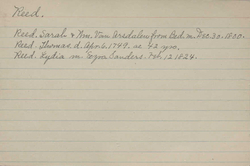 Reed.
Reed. Sarah & Wm. Van Arsdalen from Bed. m. Dec. 30. 1800.
Reed. Thomas. d. Apr. 6. 1749. ae 42 yrs.
Reed. Lydia m. Sanders. Oct. 12 1824.